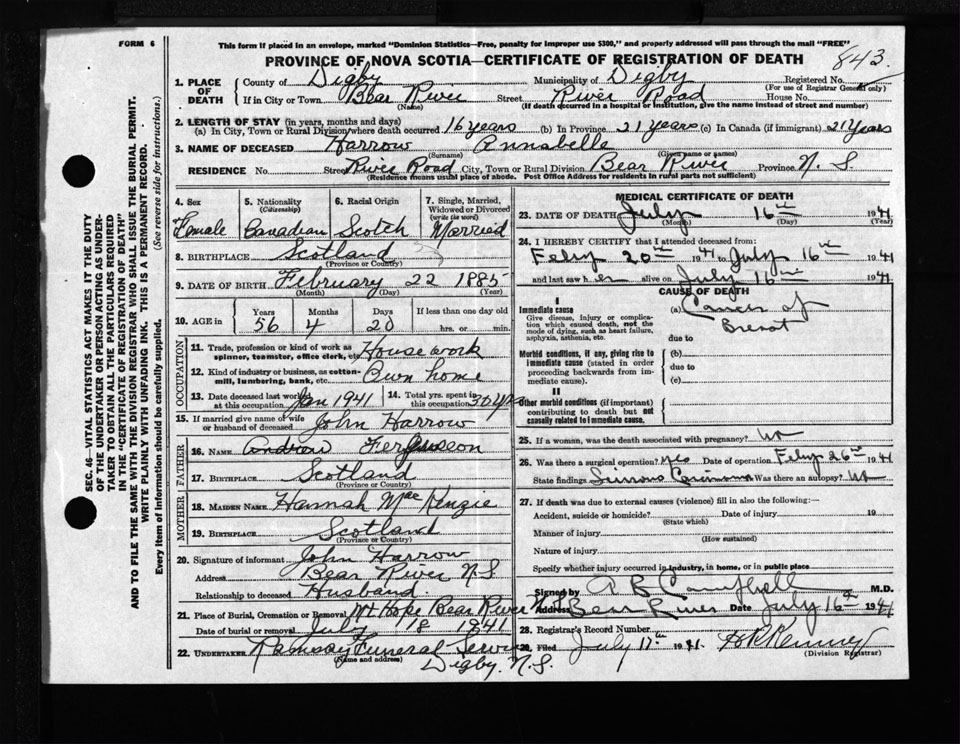 FORM 6
This form if placed in an envelope, marked "Dominion Statistics—Free, penalty for improper use $300," and properly addressed will pass through the mail "FREE"
PROVINCE OF NOVA SCOTIA—CERTIFICATE OF REGISTRATION OF DEATH
843
1. PLACE OF DEATH
County of Digby Municipality of Digby Registered No.
(For use of Registrar General only)
If in City or Town Bear River Street River Road House No.
(Name) (If death occurred in a hospital or institution, give the name instead of street and number)
2. LENGTH OF STAY (in years, months and days)
(a) In City, Town or Rural Division where death occurred 16 years (b) In Province 21 Years (c) In Canada (if immigrant) 21 Years
3. NAME OF DECEASED Harrow Annabelle
(Surname) (Given name or names)
RESIDENCE No. Street River Road City, Town or Rural Division Bear River Province N. S
(Residence means usual place of abode. Post Office Address for residents in rural parts not sufficient)
4. Sex Female
5. Nationality (Citizenship) Canadian
6. Racial Origin Scotch
7. Single, Married, Widowed or Divorced (write the word) Married
8. BIRTHPLACE Scotland
(Province or Country)
9. DATE OF BIRTH February 22 1885
(Month) (Day) (Year)
10. AGE in Years 56 Months 4 Days 20 If less than one day old hrs. or min.
OCCUPATION
11. Trade, profession or kind of work as spinner, teamster, office clerk, etc. House work
12. Kind of industry or business, as cotton-mill, lumbering, bank, etc. Own home
13. Date deceased last worked at this occupation Jan 1941
14. Total yrs. spent in this occupation 30 yrs
15. If married give name of wife or husband of deceased John Harrow
FATHER
16. NAME Andrew Fergusson
17. BIRTHPLACE Scotland
(Province or Country)
MOTHER
18. MAIDEN NAME Hannah McKenzie
19. BIRTHPLACE Scotland
(Province or Country)
20. Signature of informant John Harrow
Address Bear River N.S
Relationship to deceased Husband.
21. Place of Burial, Cremation or Removal Mt Hope Bear River
Date of burial or removal July 18 1941
22. UNDERTAKER Ramsay Funeral Service
(Name and address)
Digby. N.S.
MEDICAL CERTIFICATE OF DEATH
23. DATE OF DEATH July 16th 1941
(Month) (Day) (Year)
24. I HEREBY CERTIFY that I attended deceased from:
Feby 20th 1941 to July 16th 1941
and last saw her alive on July 16th 1941
CAUSE OF DEATH
I
Immediate cause
Give disease, injury or complication which caused death, not the mode of dying, such as heart failure, asphyxia, asthenia, etc.
(a) Cancer of
Breast
due to
Morbid conditions, if any, giving rise to immediate cause (stated in order proceeding backwards from immediate cause).
(b)
due to
(c)
II
Other morbid conditions (if important) contributing to death but not causally related to immediate cause.
25. If a woman, was the death associated with pregnancy? no
26. Was there a surgical operation? yes Date of operation Feby 26th 1941
State findings Was there an autopsy? no
27. If death was due to external causes (violence) fill in also the following:—
Accident, suicide or homicide? Date of injury 19
(State which)
Manner of injury
(How sustained)
Nature of injury
Specify whether injury occurred in industry, in home, or in public place
Signed by A B Campbell M.D.
Address Bear River Date July 16th 1941
28. Registrar's Record Number
29. Filed July 17th 1941.
(Division Registrar)
SEC. 46—VITAL STATISTICS ACT MAKES IT THE DUTY
OF THE UNDERTAKER OR PERSON ACTING AS UNDER-
TAKER TO OBTAIN ALL THE PARTICULARS REQUIRED
IN THE "CERTIFICATE OF REGISTRATION OF DEATH"
AND TO FILE THE SAME WITH THE DIVISION REGISTRAR WHO SHALL ISSUE THE BURIAL PERMIT.
WRITE PLAINLY WITH UNFADING INK. THIS IS A PERMANENT RECORD.
Every item of information should be carefully supplied. (See reverse side for instructions.)